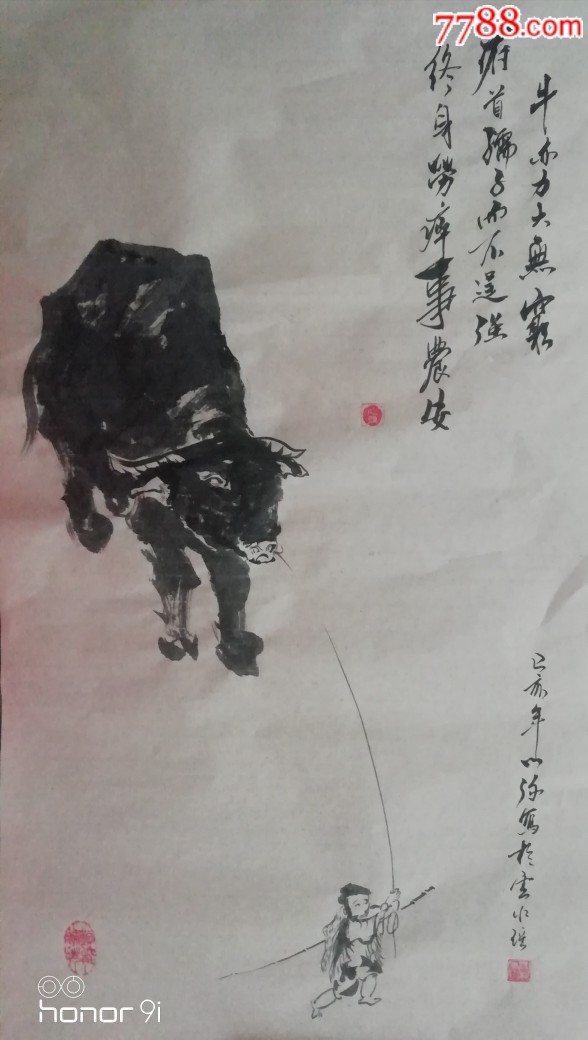 7788.com
牛亦力大無窮
俯首孺子而不逞强
終身勞瘁事農
己亥年 寫於雲水
honor 9i